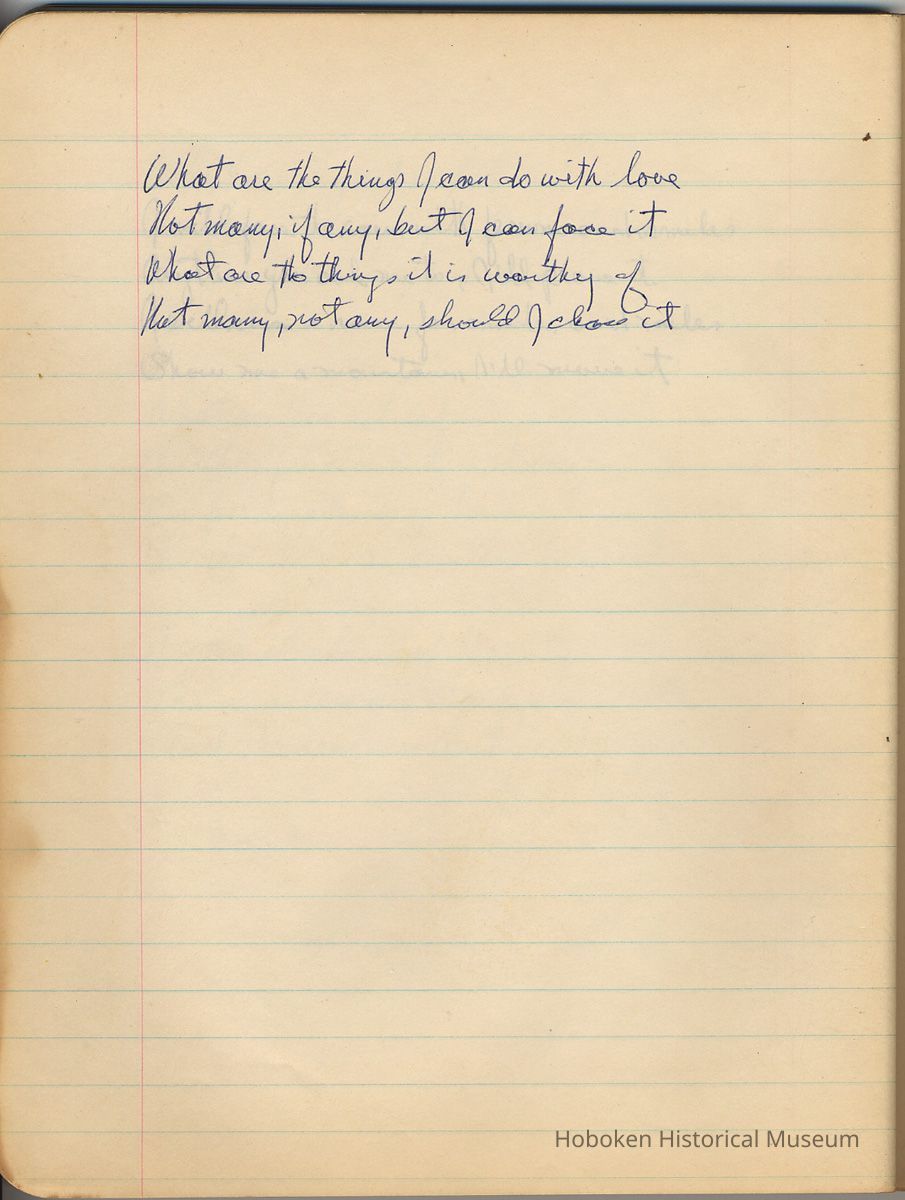 What are the things I can do with love
Not many, if any, but I can face it
What are the things it is worthy of
Not many, not any, should I chase it
Hoboken Historical Museum